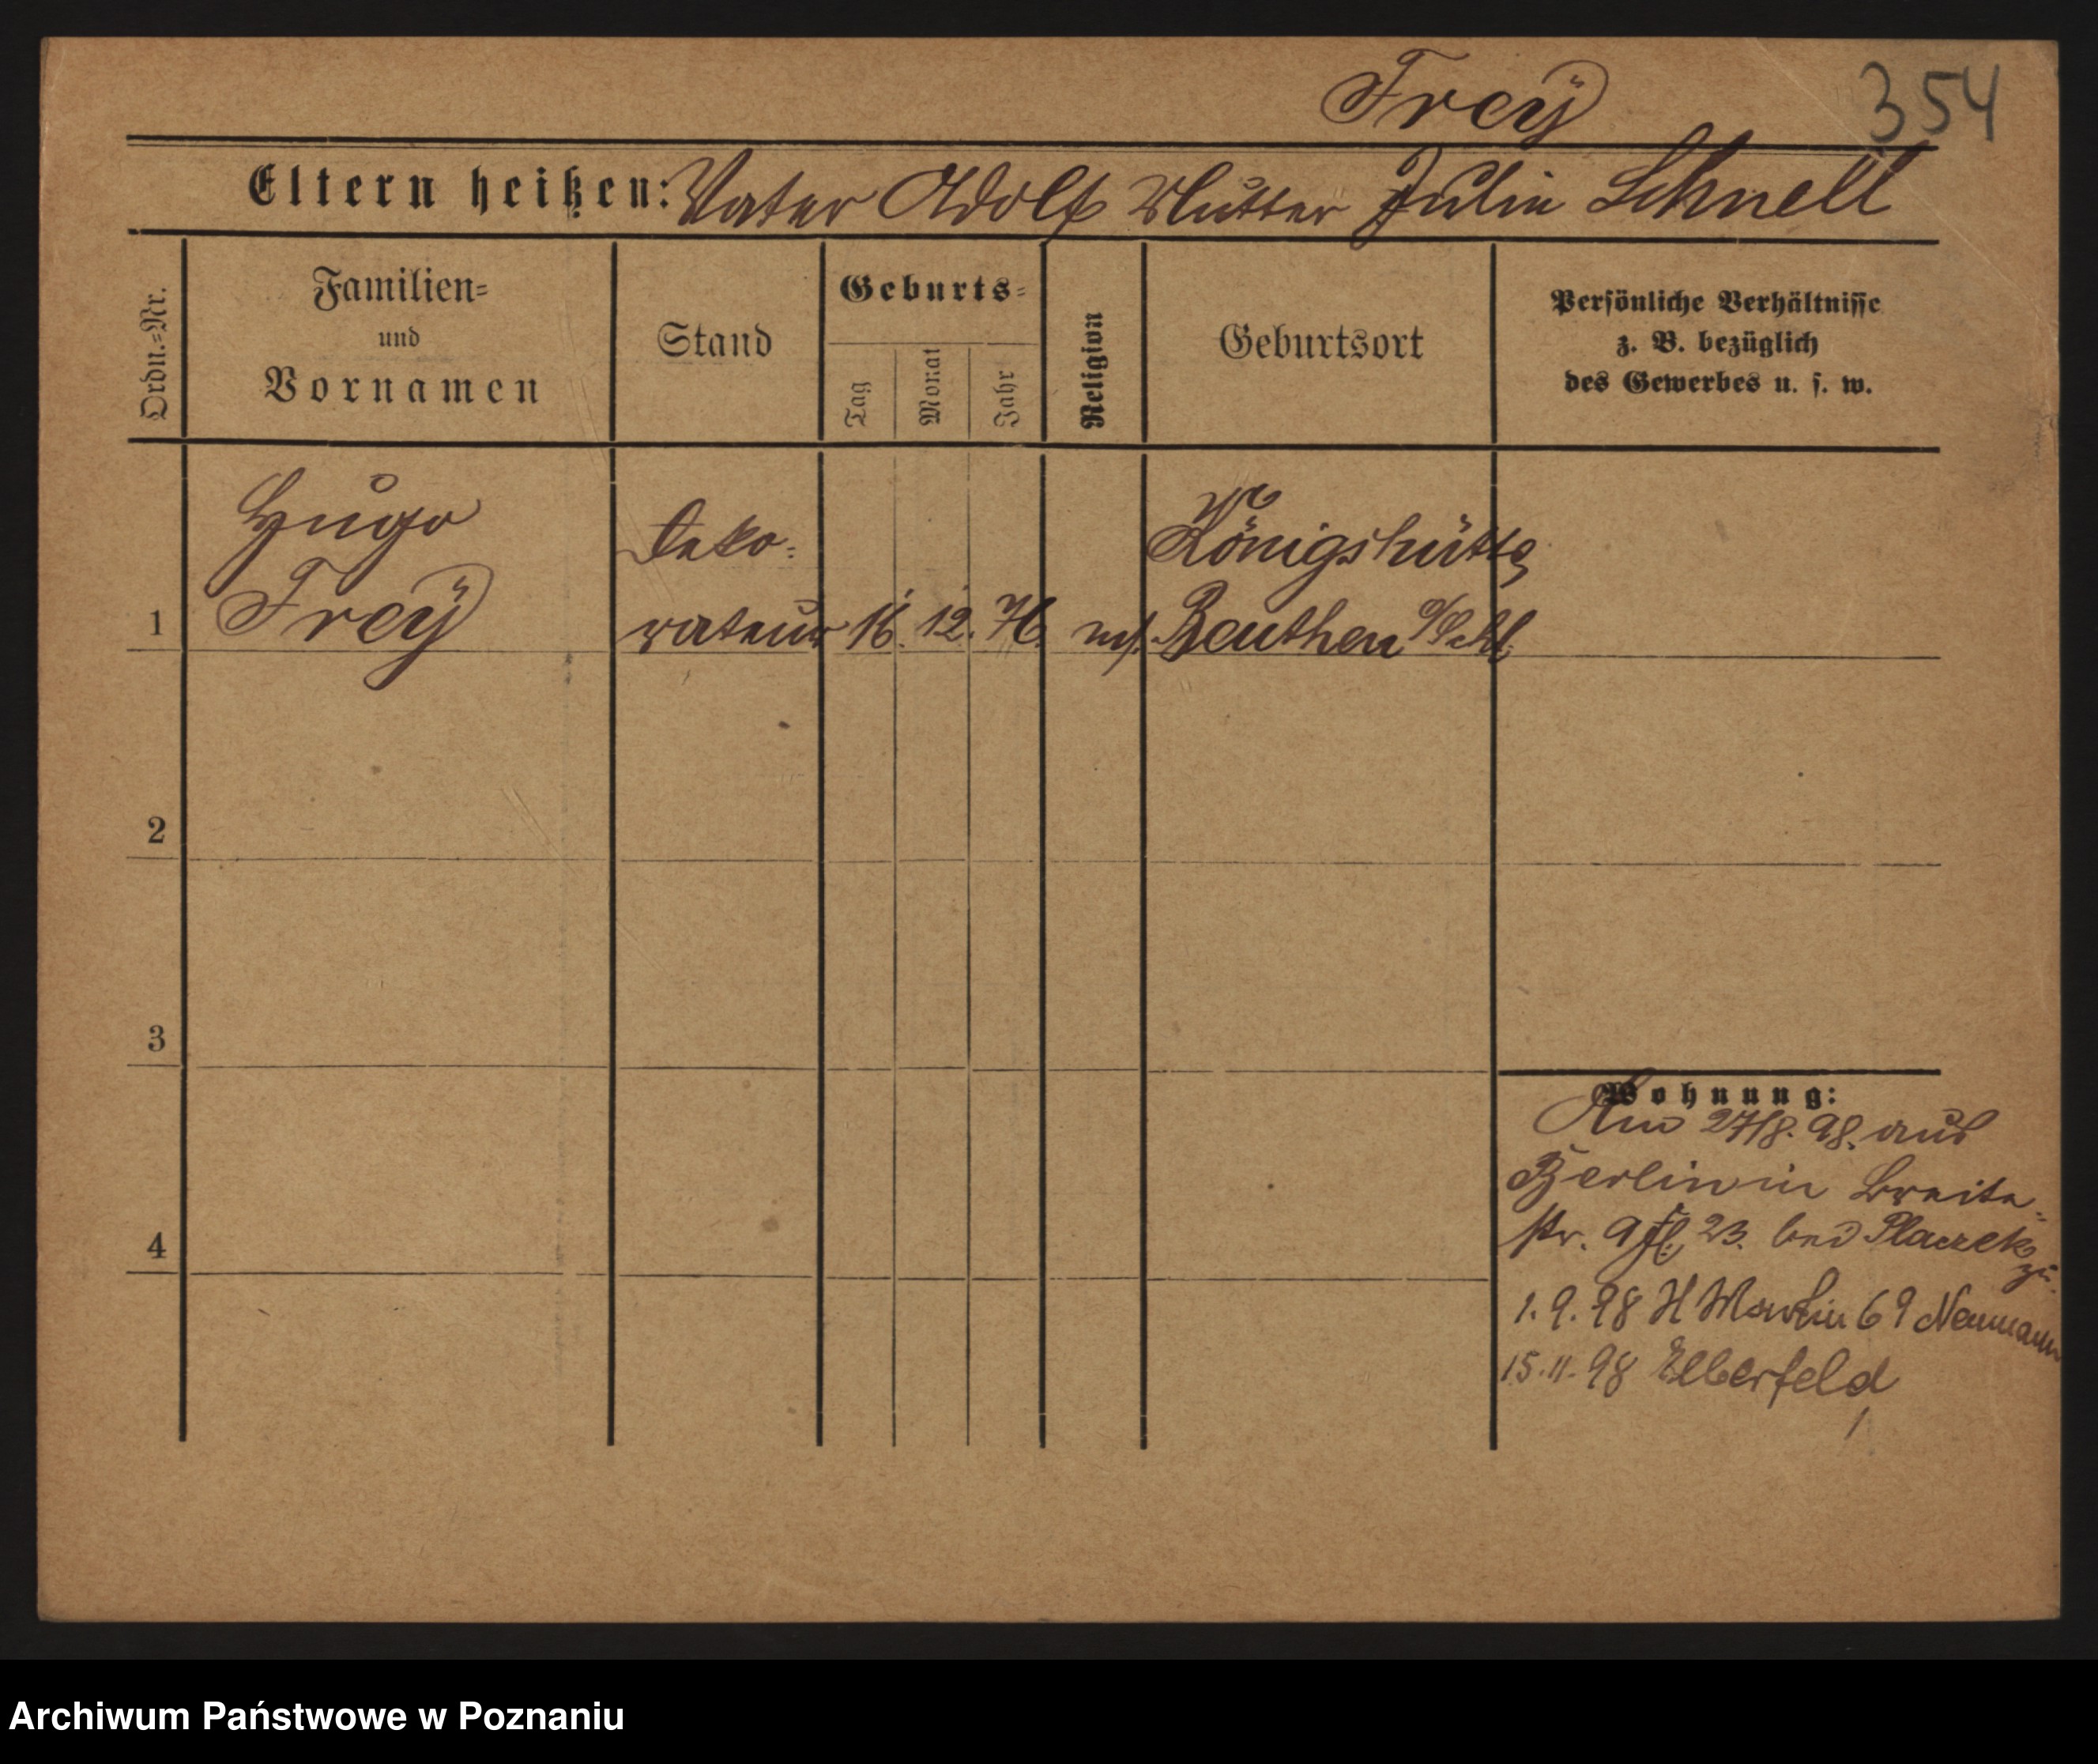 Frey
354
Eltern heißen: Vater Adolf Mutter Julie Schnell
Ordn.-Nr.
Familien-
und
Vornamen
Stand
Geburts-
Tag
Monat
Jahr
Religion
Geburtsort
Persönliche Verhältnisse
z. B. bezüglich
des Gewerbes u. s. w.
Hugo
Frey
Deko-
rateur
16. 12. 76.
Königshütte
Beuthen O/Schl.
1
2
3
4
Wohnung:
Am 27/8. 98. aus
Berlin in Breite-
str. 23. bei Placzek
zu.
1. 9. 98 H Martin 69 Neumann
15. 11. 98 Elberfeld
Archiwum Państwowe w Poznaniu